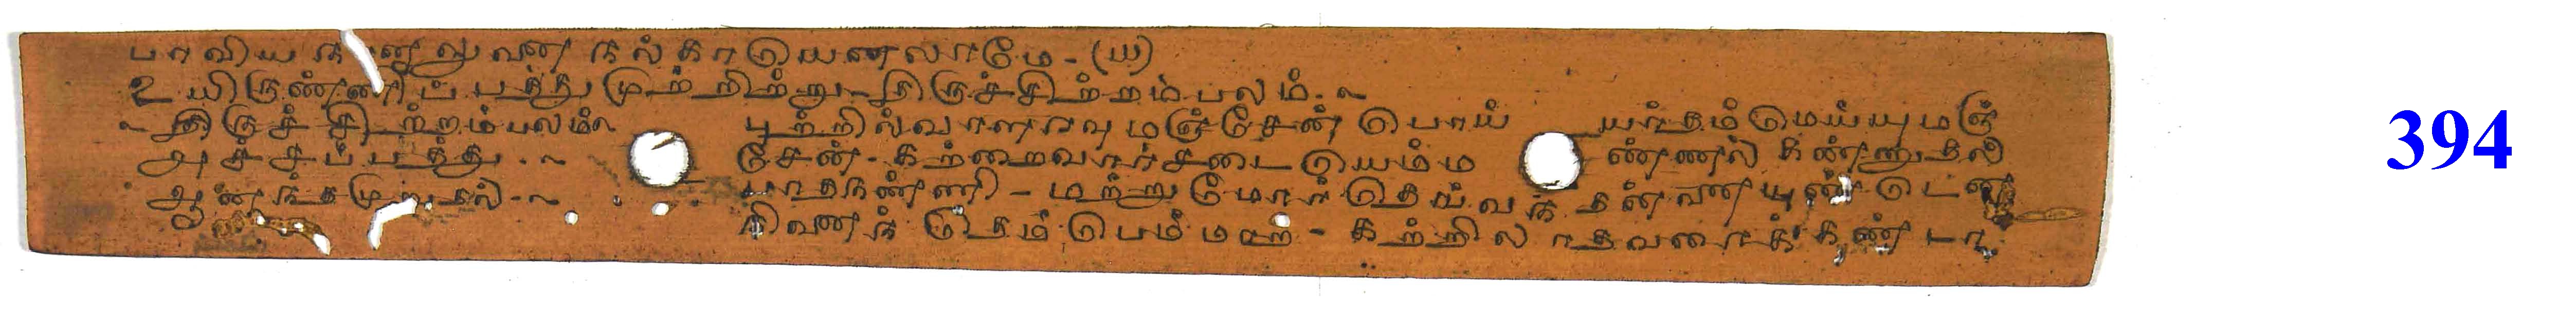 பாவியகனனுவணைகல்காயெனலாமே - (ய)
உயிருண்ணிப்பத்து முற்றிற்று - திருச்சிற்றம்பலம்.
திருச்சிற்றம்பலம் புற்றில்வாளரவுமஞ்சேன் பொய் யர்தம்மெய்யுமஞ்
அச்சப்பத்து சேன் - கற்றைவார்சடையெம்ம ண்ணல் கண்ணுதல்
ஆனந்தமுறுதல் பாதநண்ணி - மற்றுமோர்தெய்வந் தன்னையுண்டென
நினைந் தெம்பெம்மாற - கற்றிலாதவரைக்கண்டா
394